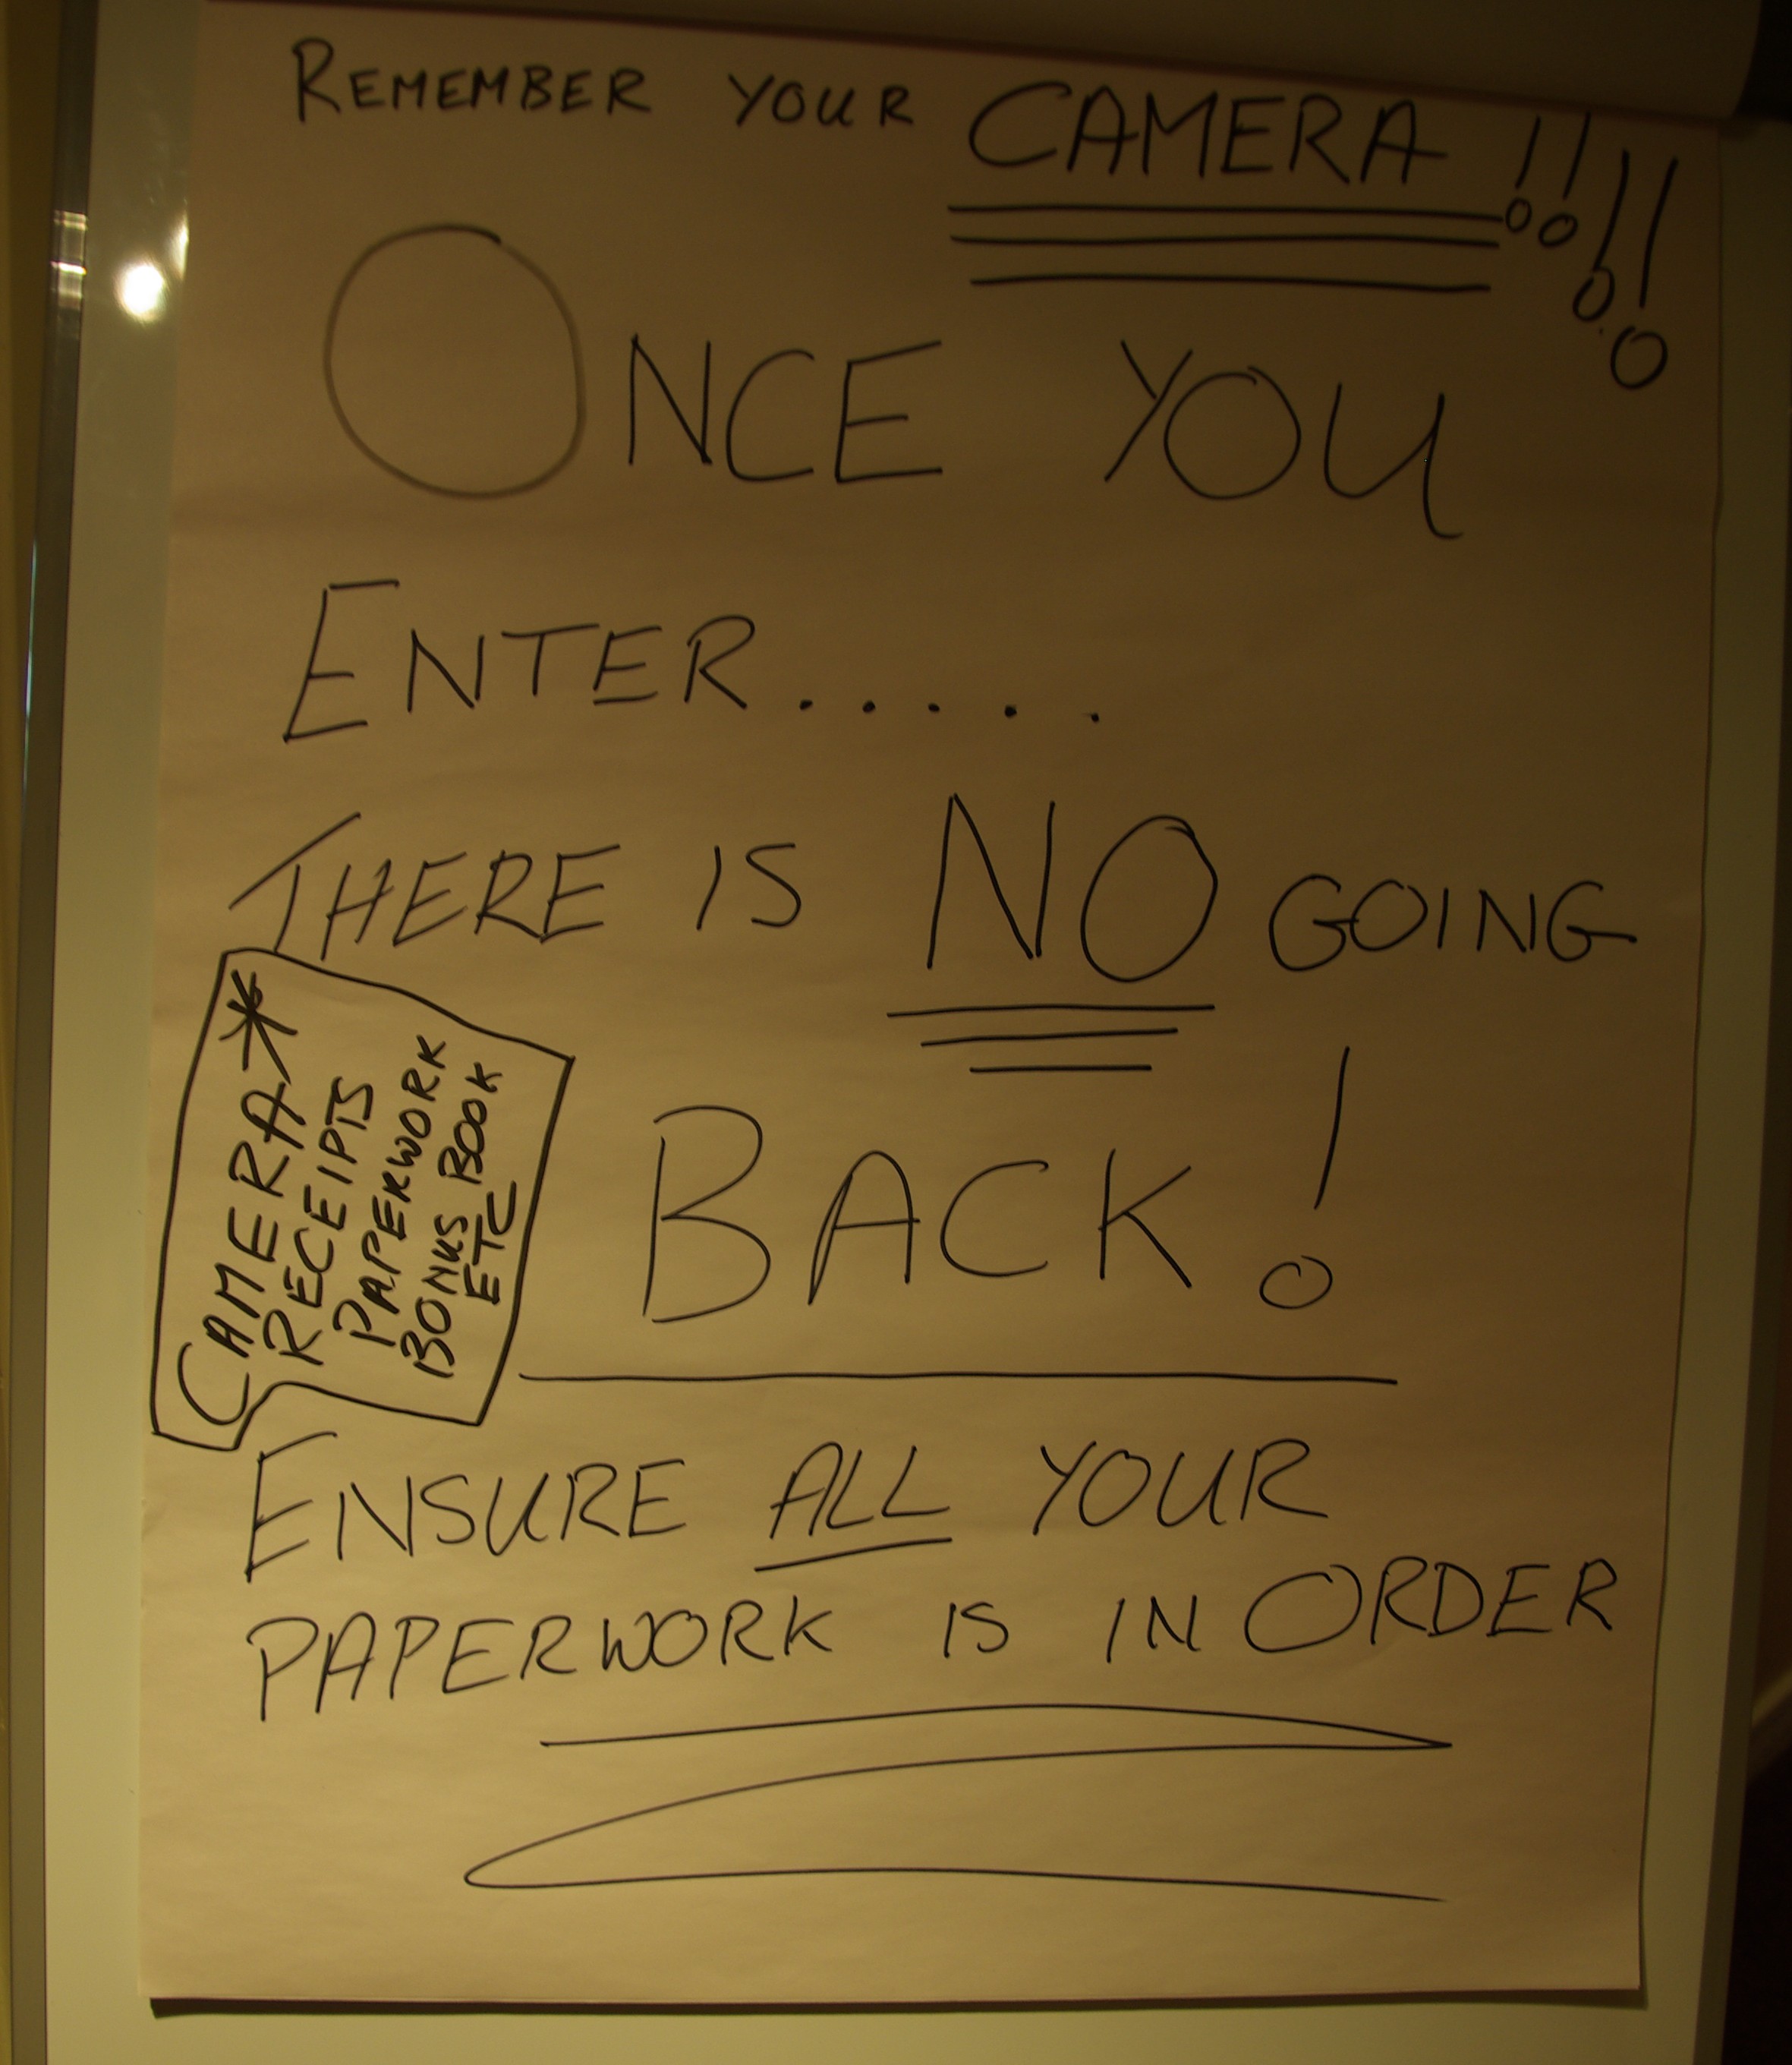 REMEMBER YOUR CAMERA!!!!
ONCE YOU
ENTER.....
THERE IS NO GOING
BACK!
CAMERA*
RECEIPTS
PAPERWORK
BONUS BOOK
ETC
ENSURE ALL YOUR
PAPERWORK IS IN ORDER